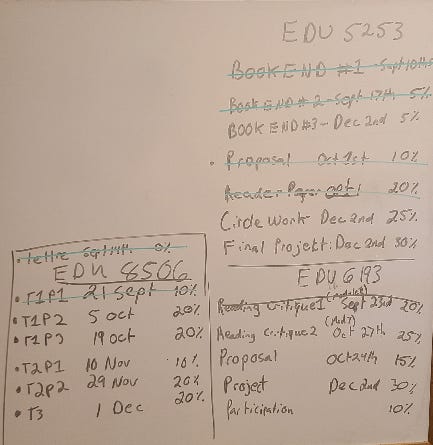 EDU 5253
BOOK END #1 - Sept 10th
BOOK END #2 - Sept 17th 5%
BOOK END #3 - Dec 2nd 5%
• Proposal Oct 1st 10%
Reader Oct 1 20%
Circle Work Dec 2nd 25%
Final Projekt: Dec 2nd 30%
• lettre Sept 14th 0%
EDU 8506
• T1P1 21 Sept 10%
• T1P2 5 oct 20%
• T1P3 19 oct 20%
• T2P1 10 Nov 10%
• T2P2 29 Nov 20%
• T3 1 Dec 20%
EDU 6193
Reading Critique 1 Sept 23rd 20%
Reading Critique 2 (Mod 7) Oct 27th 25%
Proposal Oct 24th 15%
Project Dec 2nd 30%
Participation 10%